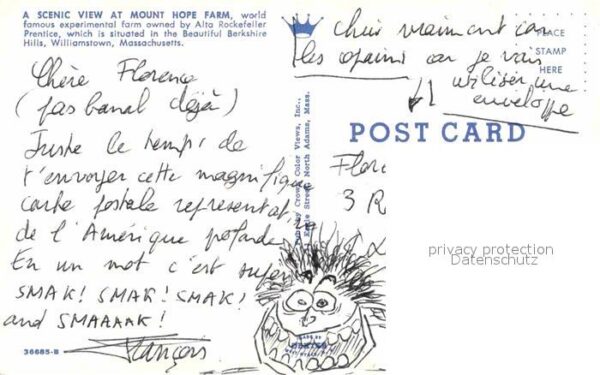 A SCENIC VIEW AT MOUNT HOPE FARM, world
famous experimental farm owned by Alta Rockefeller
Prentice, which is situated in the Beautiful Berkshire
Hills, Williamstown, Massachusetts.
Chère Florence
(pas banal déjà)
Juste le temps de
t'envoyer cette magnifique
carte postale représentative
de l'Amérique profonde
En un mot c'est super
SMAK! SMAK! SMAK!
and SMAAAAK!
François
36685-B
Color Views, Inc.,
Street, North Adams, Mass.
vraiment con
les copains car je vais
utiliser une
enveloppe
PLACE
STAMP
HERE
POST CARD
Flor
3 R
privacy protection
Datenschutz
MADE BY
DEXTER